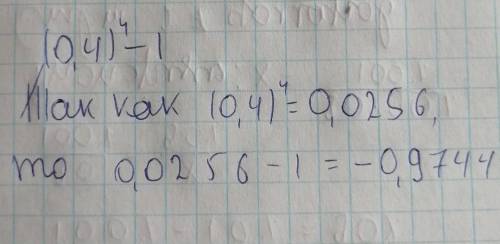 (0,4)⁴-1
Так как (0,4)⁴=0,0256,
то 0,0256-1=-0,9744